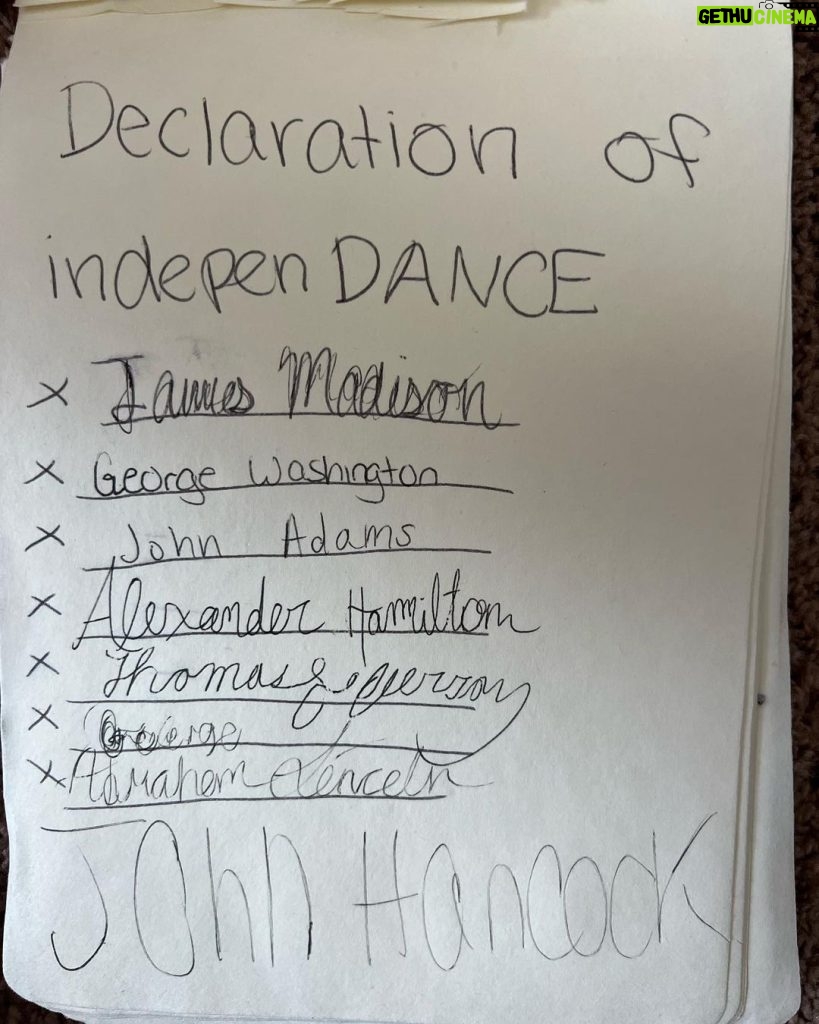 GETHUCINEMA
Declaration of
indepenDANCE
x James Madison
x George Washington
x John Adams
x Alexander Hamilton
x Thomas Jefferson
x George
x Abraham Linceln
JOhn Hancock